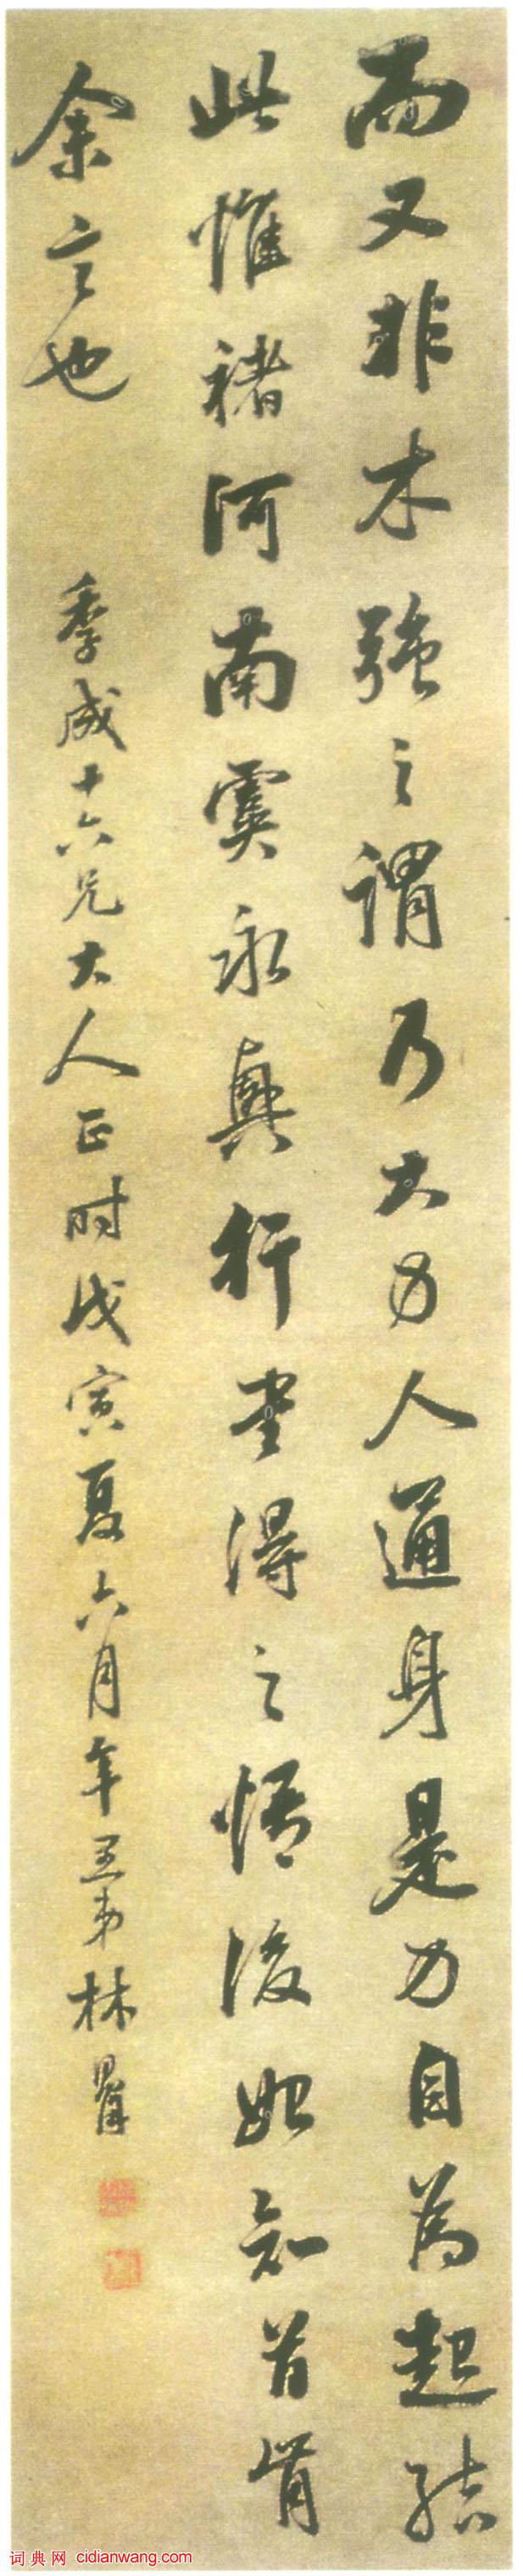 而又非木強之謂乃大力人通身是力自為起結
此惟褚河南虞永興行書得之悟後始知
余言也
季成十六兄大人正时戊寅夏六月年弟林
词典网 cidianwang.com